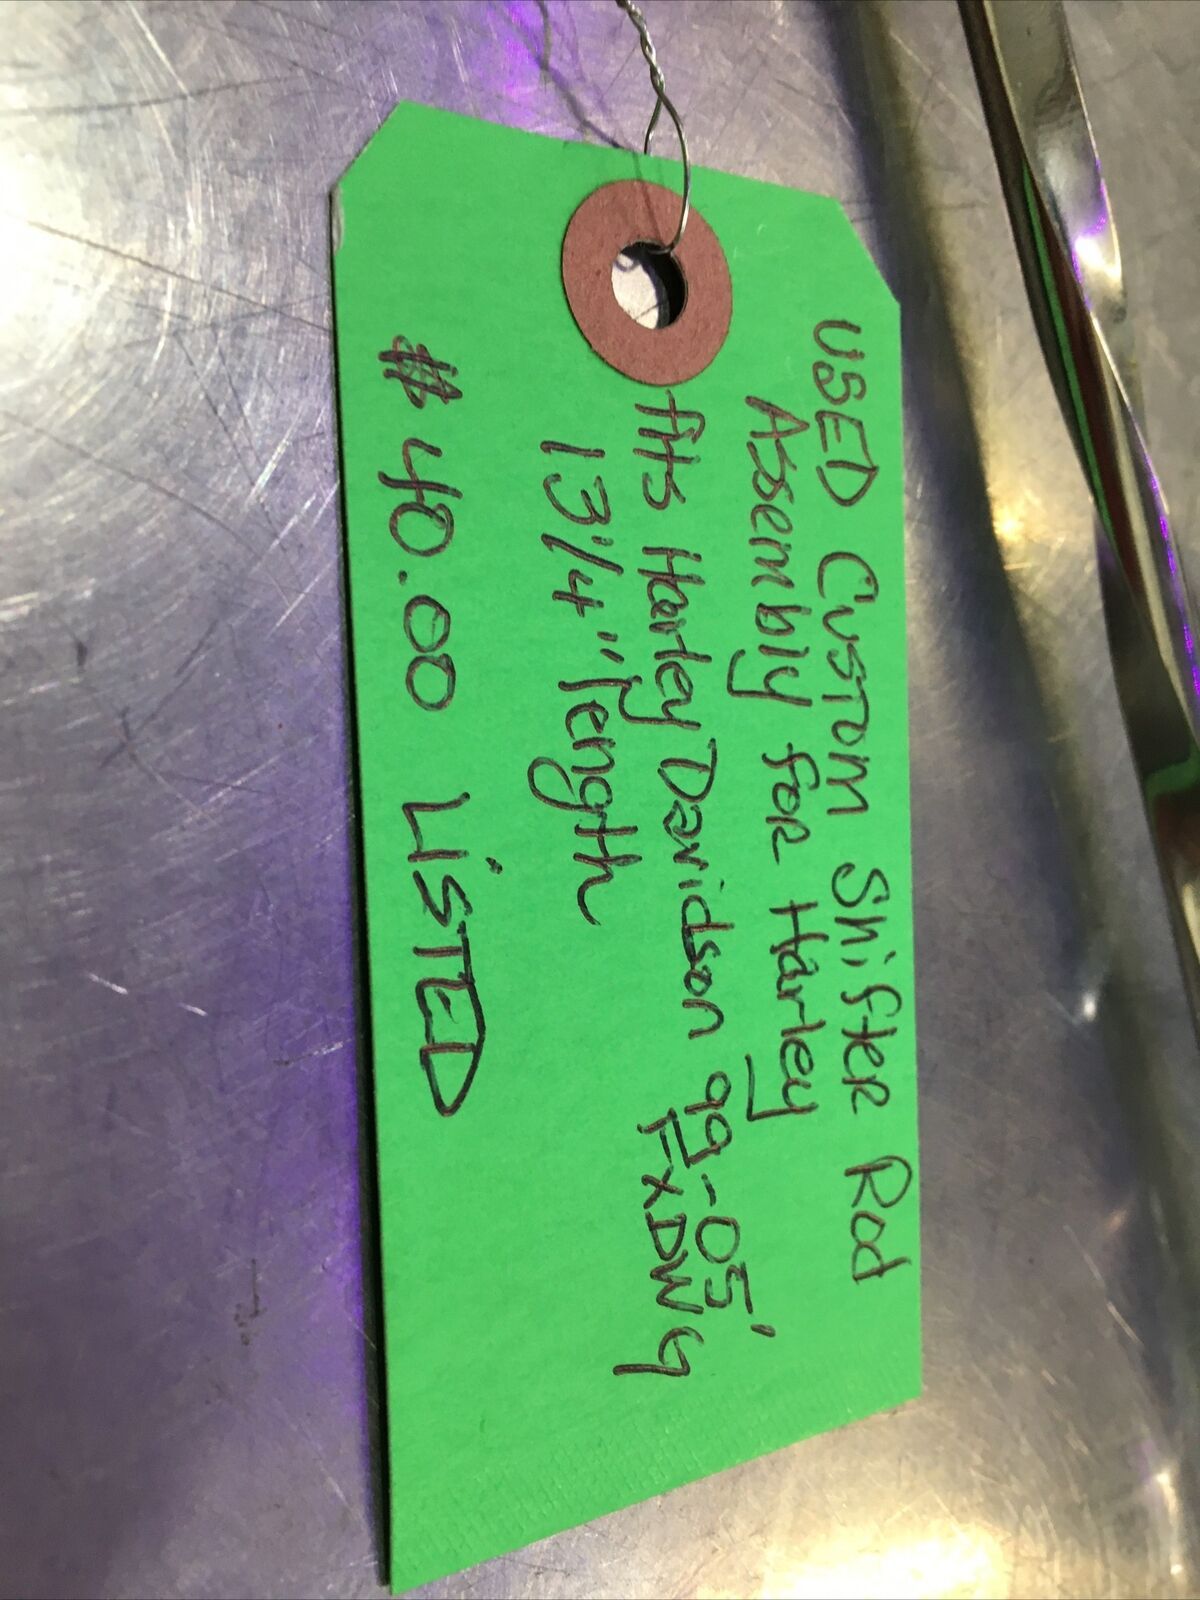 USED CUSTOM Shifter Rod
Assembly for Harley
fits Harley Davidson 99-05'
FXDWG
13 1/4" length
$ 40.00 LiSTED